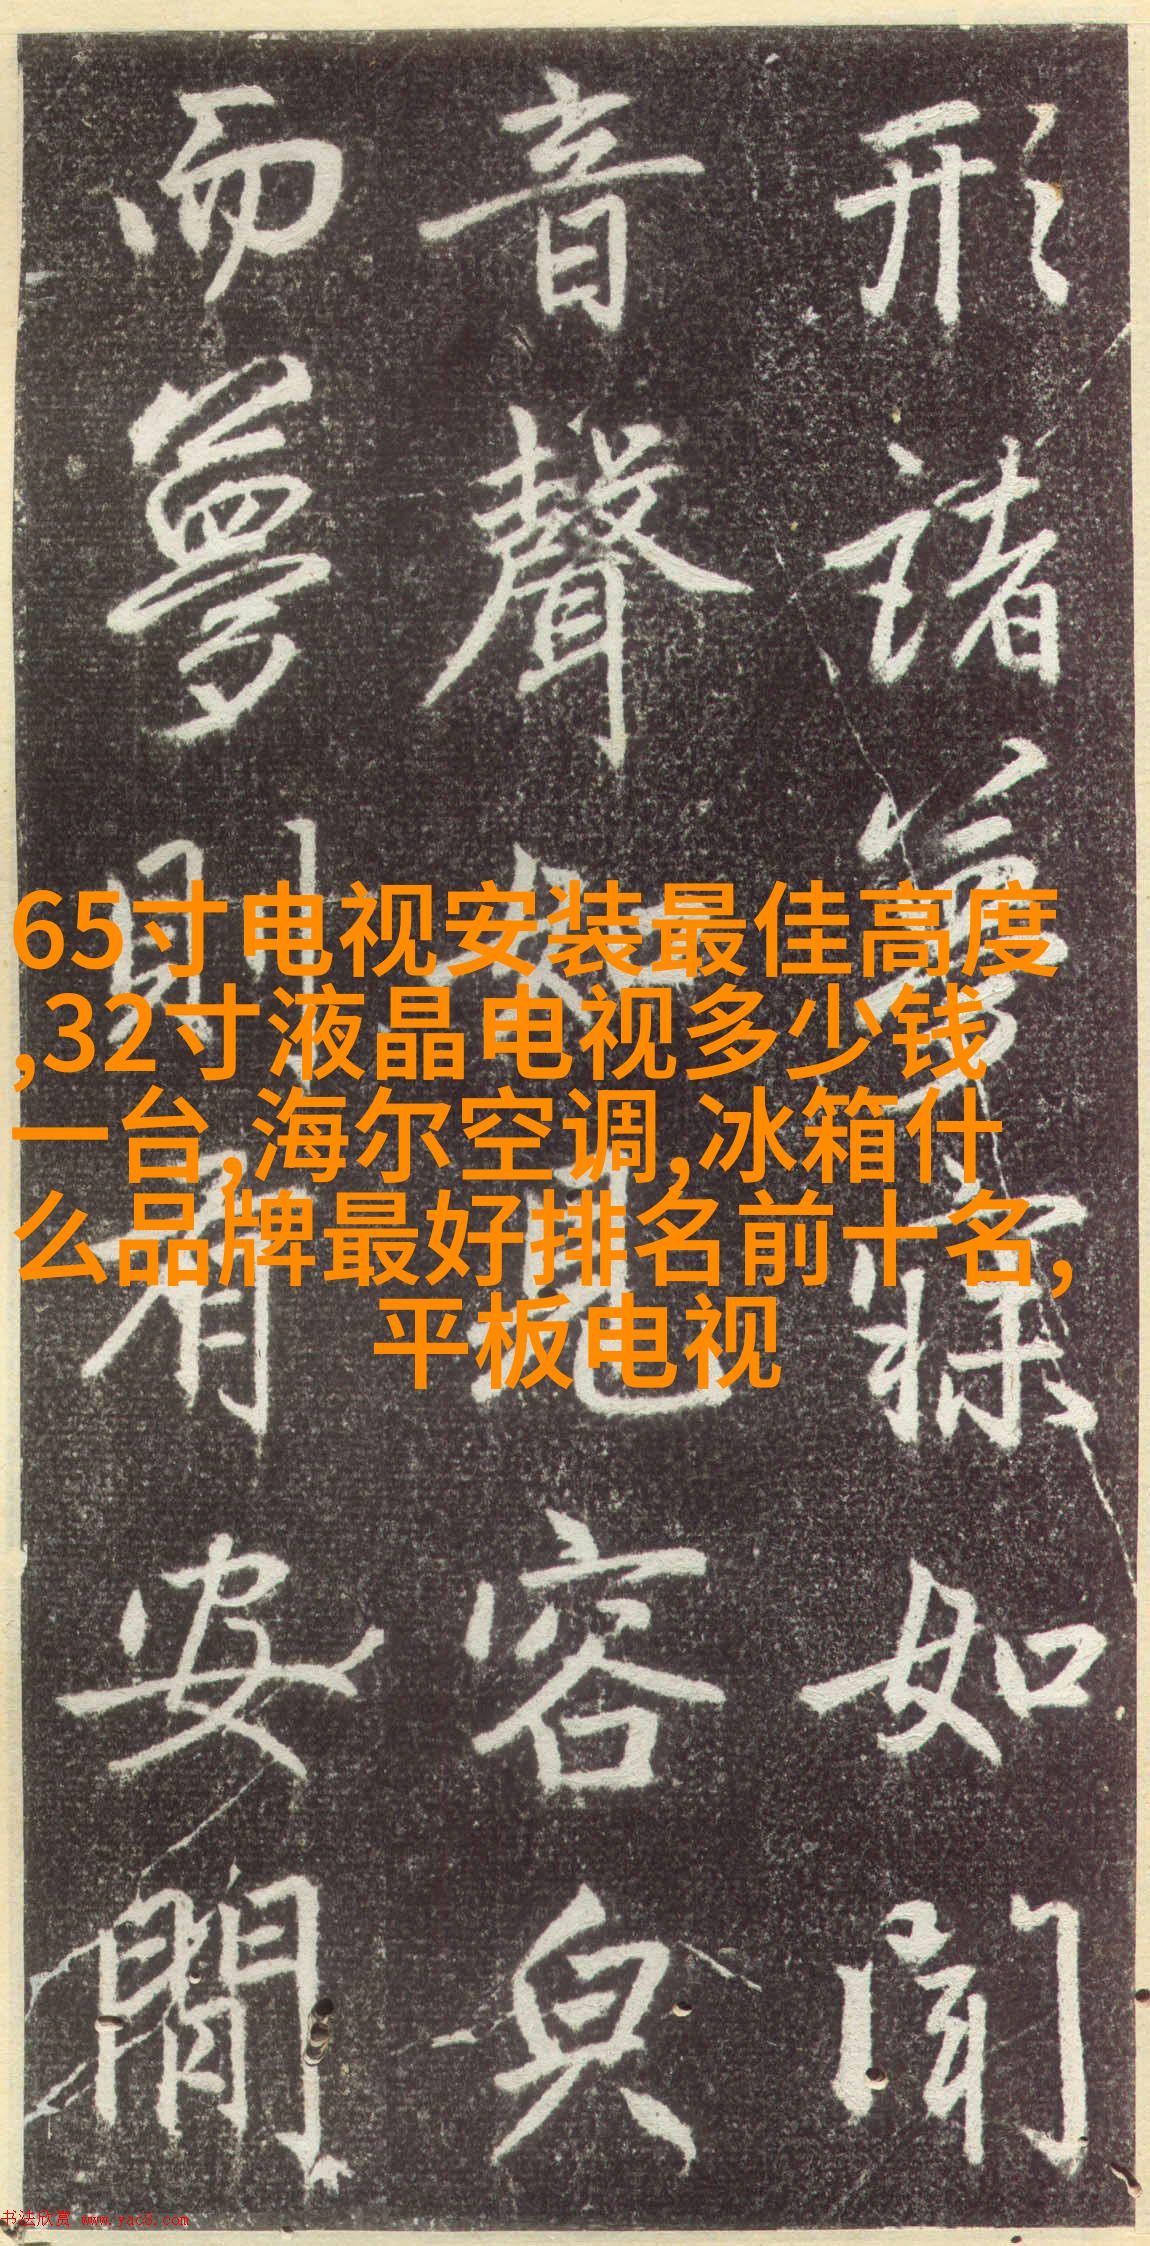 形諸夢寐如聞
音聲如見容皃
而夢則安閒
65寸电视安装最佳高度
,32寸液晶电视多少钱
一台,海尔空调,冰箱什
么品牌最好排名前十名,
平板电视
书法欣赏 www.yac8.com